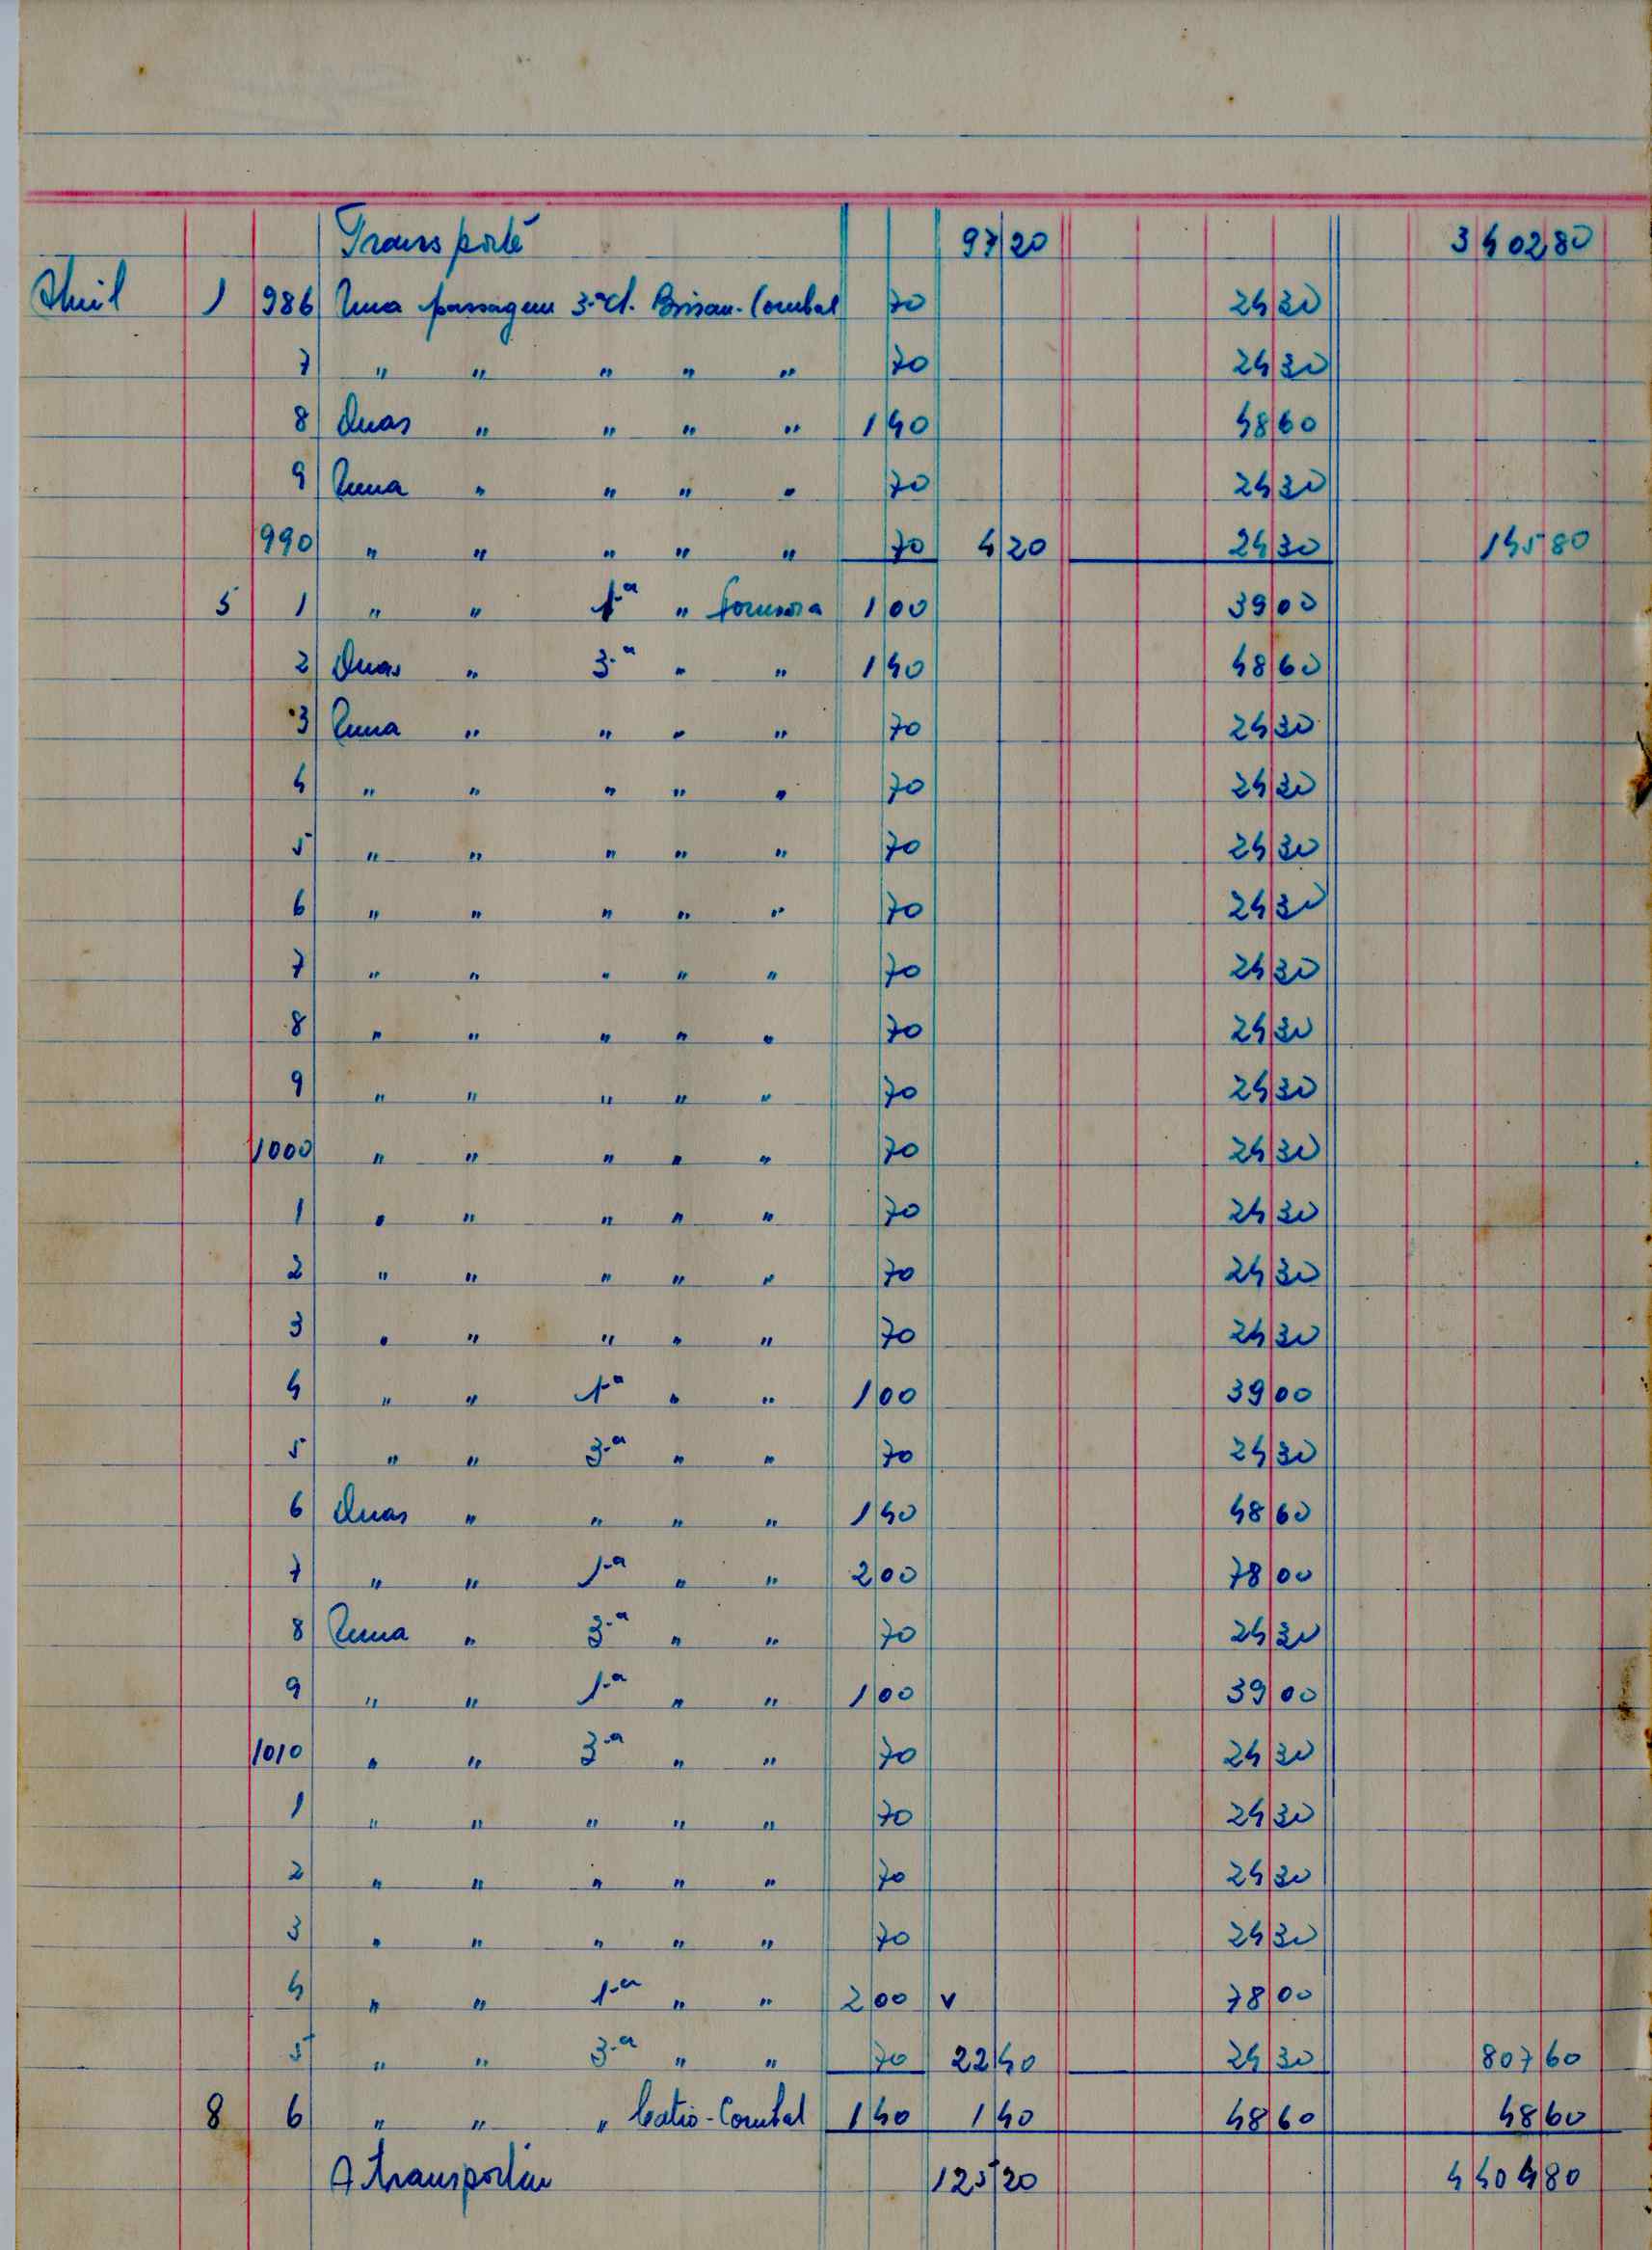 Transporte 97 20 3 402,80
Abril 1 986 Uma passagem 3.ª cl. Bissau-Combal 70 24 30
7 " " " " " 70 24 30
8 Duas " " " " 1 40 48 60
9 Uma " " " " 70 24 30
990 " " " " " 70 4 20 24 30 145 80
5 1 " " 1.ª " Formosa 1 00 39 00
2 Duas " 3.ª " " 1 40 48 60
3 Uma " " " " 70 24 30
4 " " " " " 70 24 30
5 " " " " " 70 24 30
6 " " " " " 70 24 30
7 " " " " " 70 24 30
8 " " " " " 70 24 30
9 " " " " " 70 24 30
1000 " " " " " 70 24 30
1 " " " " " 70 24 30
2 " " " " " 70 24 30
3 " " " " " 70 24 30
4 " " 1.ª " " 1 00 39 00
5 " " 3.ª " " 70 24 30
6 Duas " " " " 1 40 48 60
7 " " 1.ª " " 2 00 78 00
8 Uma " 3.ª " " 70 24 30
9 " " 1.ª " " 1 00 39 00
1010 " " 3.ª " " 70 24 30
1 " " " " " 70 24 30
2 " " " " " 70 24 30
3 " " " " " 70 24 30
4 " " 1.ª " " 2 00 v 78 00
5 " " 3.ª " " 70 22 40 24 30 807 60
8 6 " " " Catió-Combal 1 40 1 40 48 60 48 60
A transportar 125 20 4 404 80